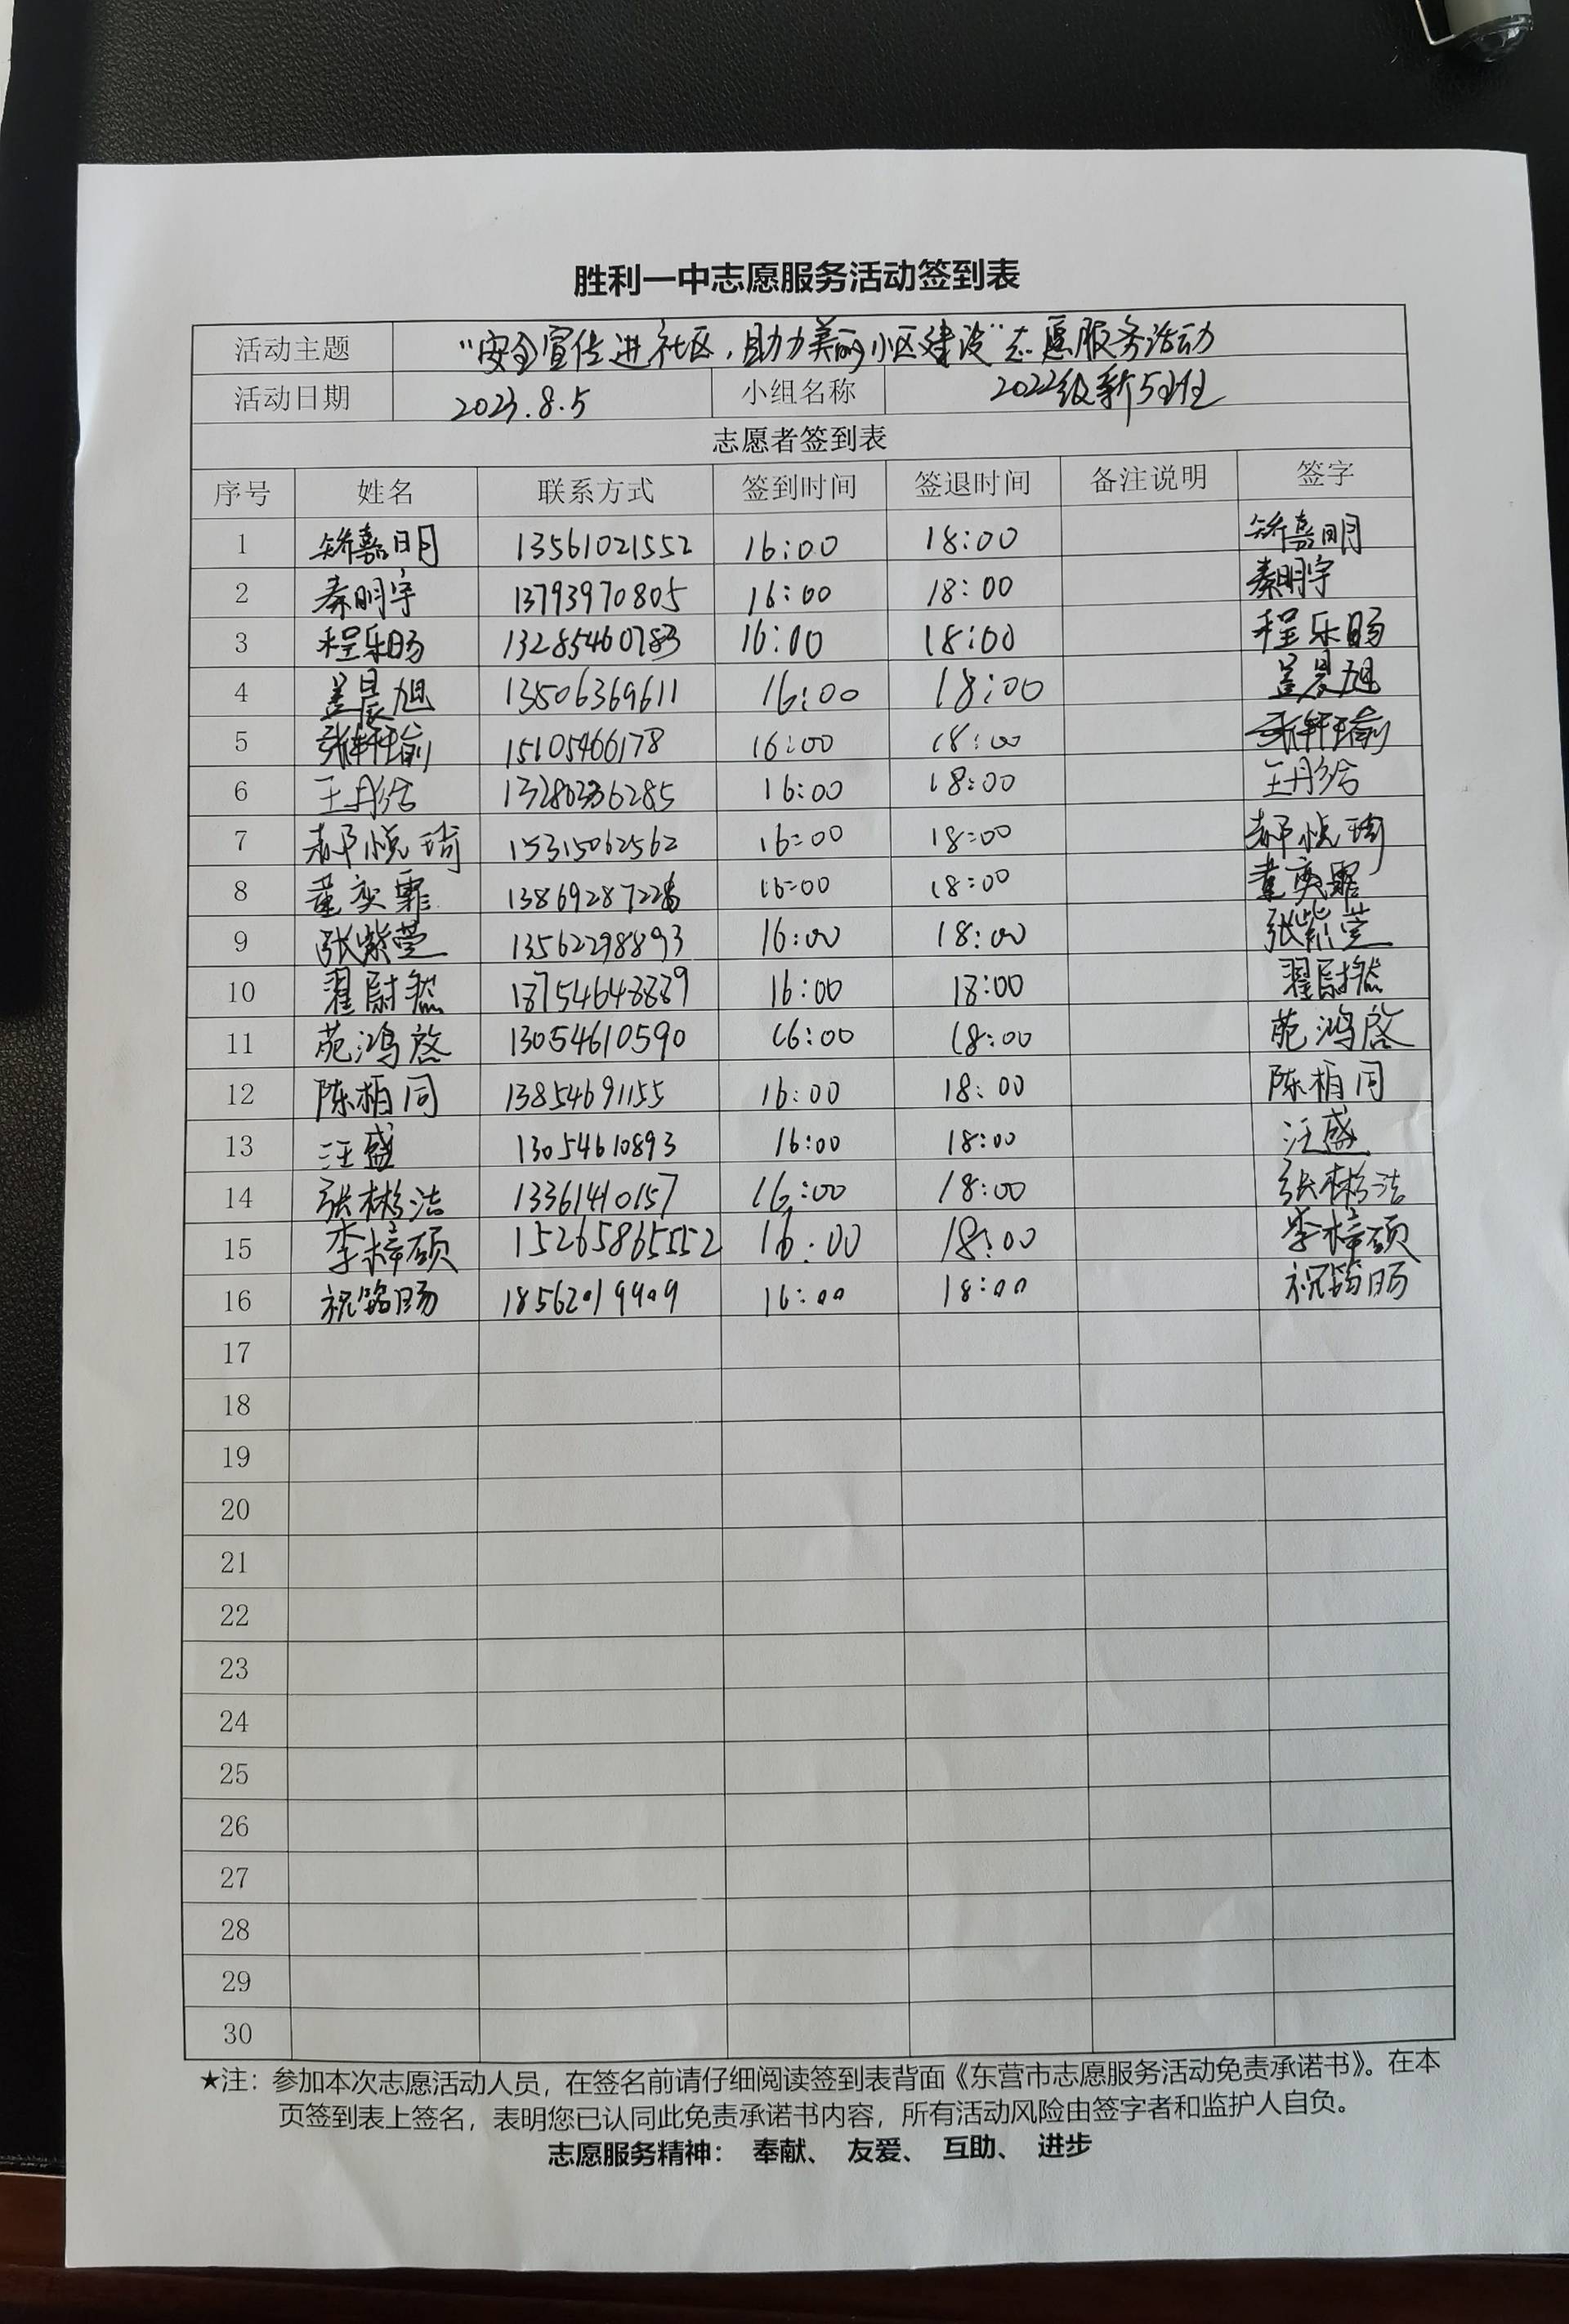 胜利一中志愿服务活动签到表
活动主题 “安全宣传进社区，助力美丽小区建设”志愿服务活动
活动日期 2023.8.5 小组名称 2022级新5班
志愿者签到表
序号 姓名 联系方式 签到时间 签退时间 备注说明 签字
1 矫嘉明 13561021552 16:00 18:00 矫嘉明
2 秦明宇 13793970805 16:00 18:00 秦明宇
3 程乐旸 13285460783 16:00 18:00 程乐旸
4 晨旭 13506369611 16:00 18:00 晨旭
5 张轩瑜 15105466178 16:00 18:00 张轩瑜
6 王彤 16:00 18:00 王彤
7 郝悦琦 15315062562 16:00 18:00 郝悦琦
8 董奕霏 16:00 18:00 董奕霏
9 张紫萱 13562298893 16:00 18:00 张紫萱
10 翟尉然 18754648889 16:00 18:00 翟尉然
11 苑鸿启 13054610590 16:00 18:00 苑鸿啓
12 陈柏同 13854691155 16:00 18:00 陈柏同
13 汪盛 13054610893 16:00 18:00 汪盛
14 张彬洁 13361410157 16:00 18:00 张彬洁
15 李梓硕 15265865552 16:00 18:00 李梓硕
16 祝铭旸 18562019909 16:00 18:00 祝铭旸
17
18
19
20
21
22
23
24
25
26
27
28
29
30
★注：参加本次志愿活动人员，在签名前请仔细阅读签到表背面《东营市志愿服务活动免责承诺书》。在本
页签到表上签名，表明您已认同此免责承诺书内容，所有活动风险由签字者和监护人自负。
志愿服务精神： 奉献、 友爱、 互助、 进步